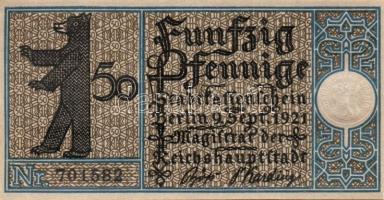 Funfzig
50 Pfennige
Stadtkassenschein
Berlin 9. Sept. 1921
Magistrat der
Reichshauptstadt
Nr. 701582